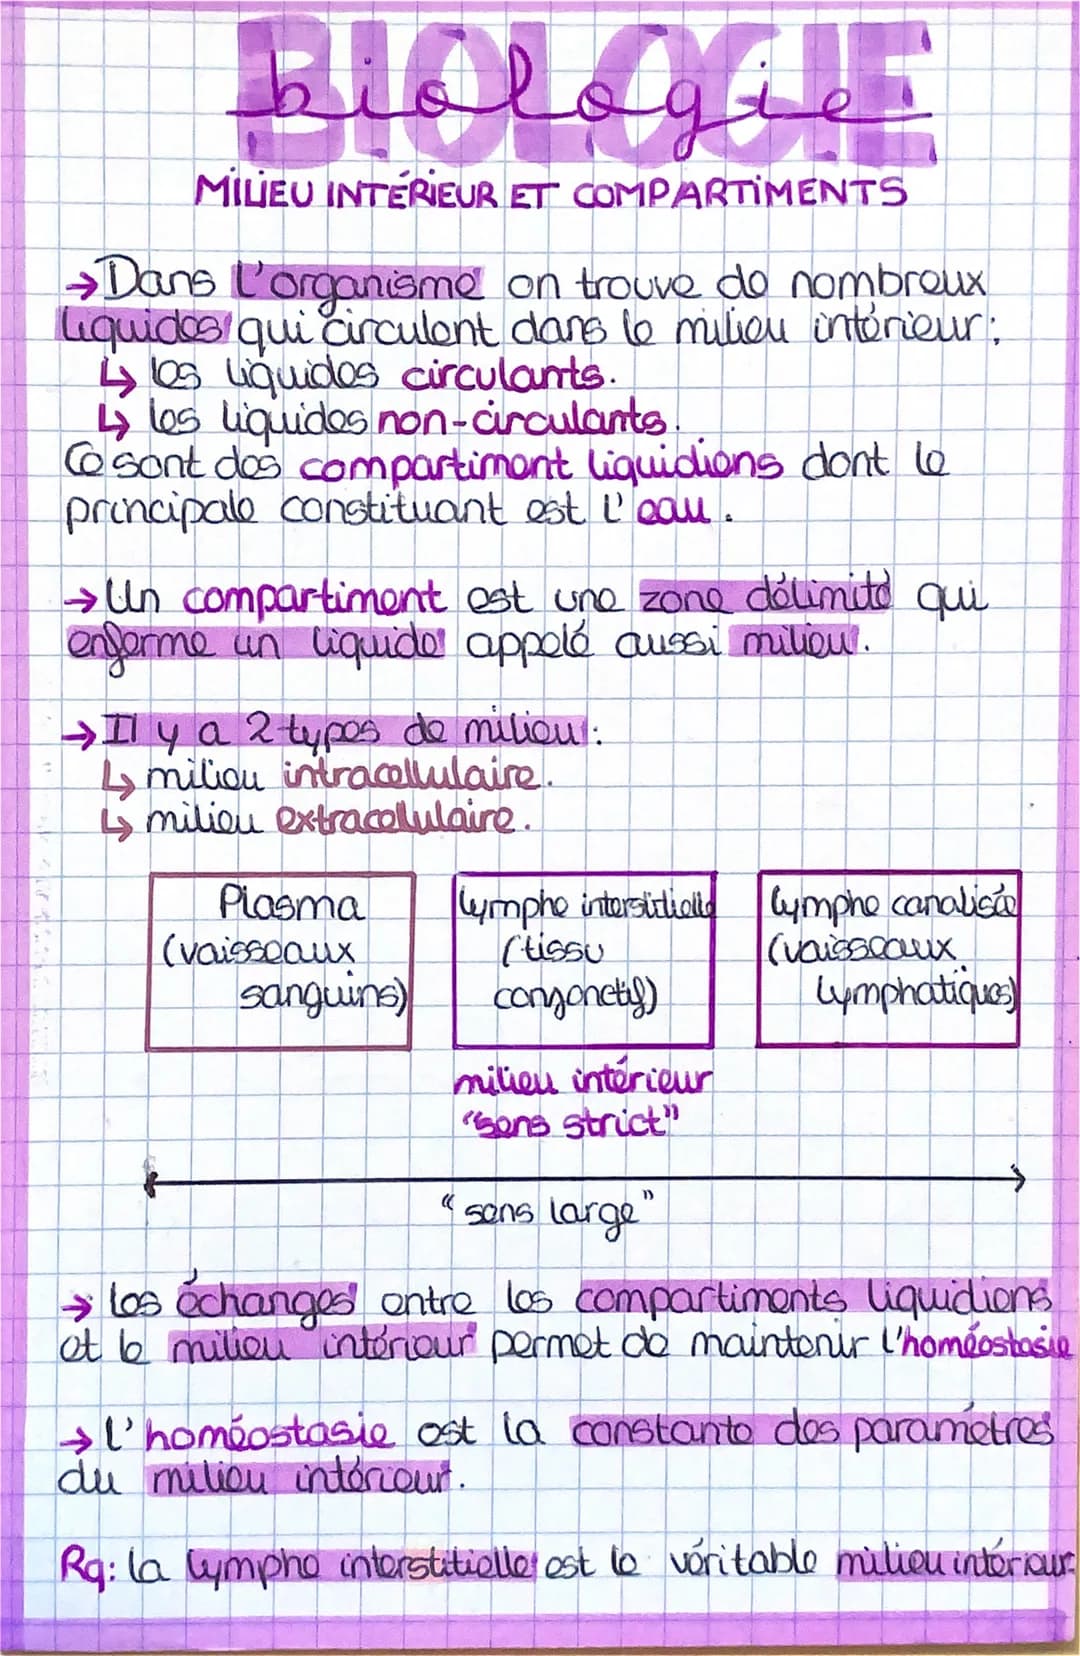 BIOLOGIE
biologie
MILIEU INTÉRIEUR ET COMPARTIMENTS
→ Dans l'organisme on trouve de nombreux
liquides qui circulent dans le milieu intérieur :
↳ les liquides circulants.
↳ les liquides non-circulants.
Ce sont des compartiment liquidiens dont le
principale constituant est l'eau.
→ Un compartiment est une zone délimité qui
enferme un liquide appelé aussi milieu.
→ Il y a 2 types de milieu :
↳ milieu intracellulaire.
↳ milieu extracellulaire.
Plasma
(vaisseaux
sanguins)
lymphe interstitielle
(tissu
conjonctif)
lymphe canalisée
(vaisseaux
lymphatiques)
milieu intérieur
"sens strict"
"sens large"
→ les échanges entre les compartiments liquidiens
et le milieu intérieur permet de maintenir l'homéostasie
→ L'homéostasie est la constante des paramètres
du milieu intérieur.
Rq: la lymphe interstitielle est le véritable milieu intérieur.